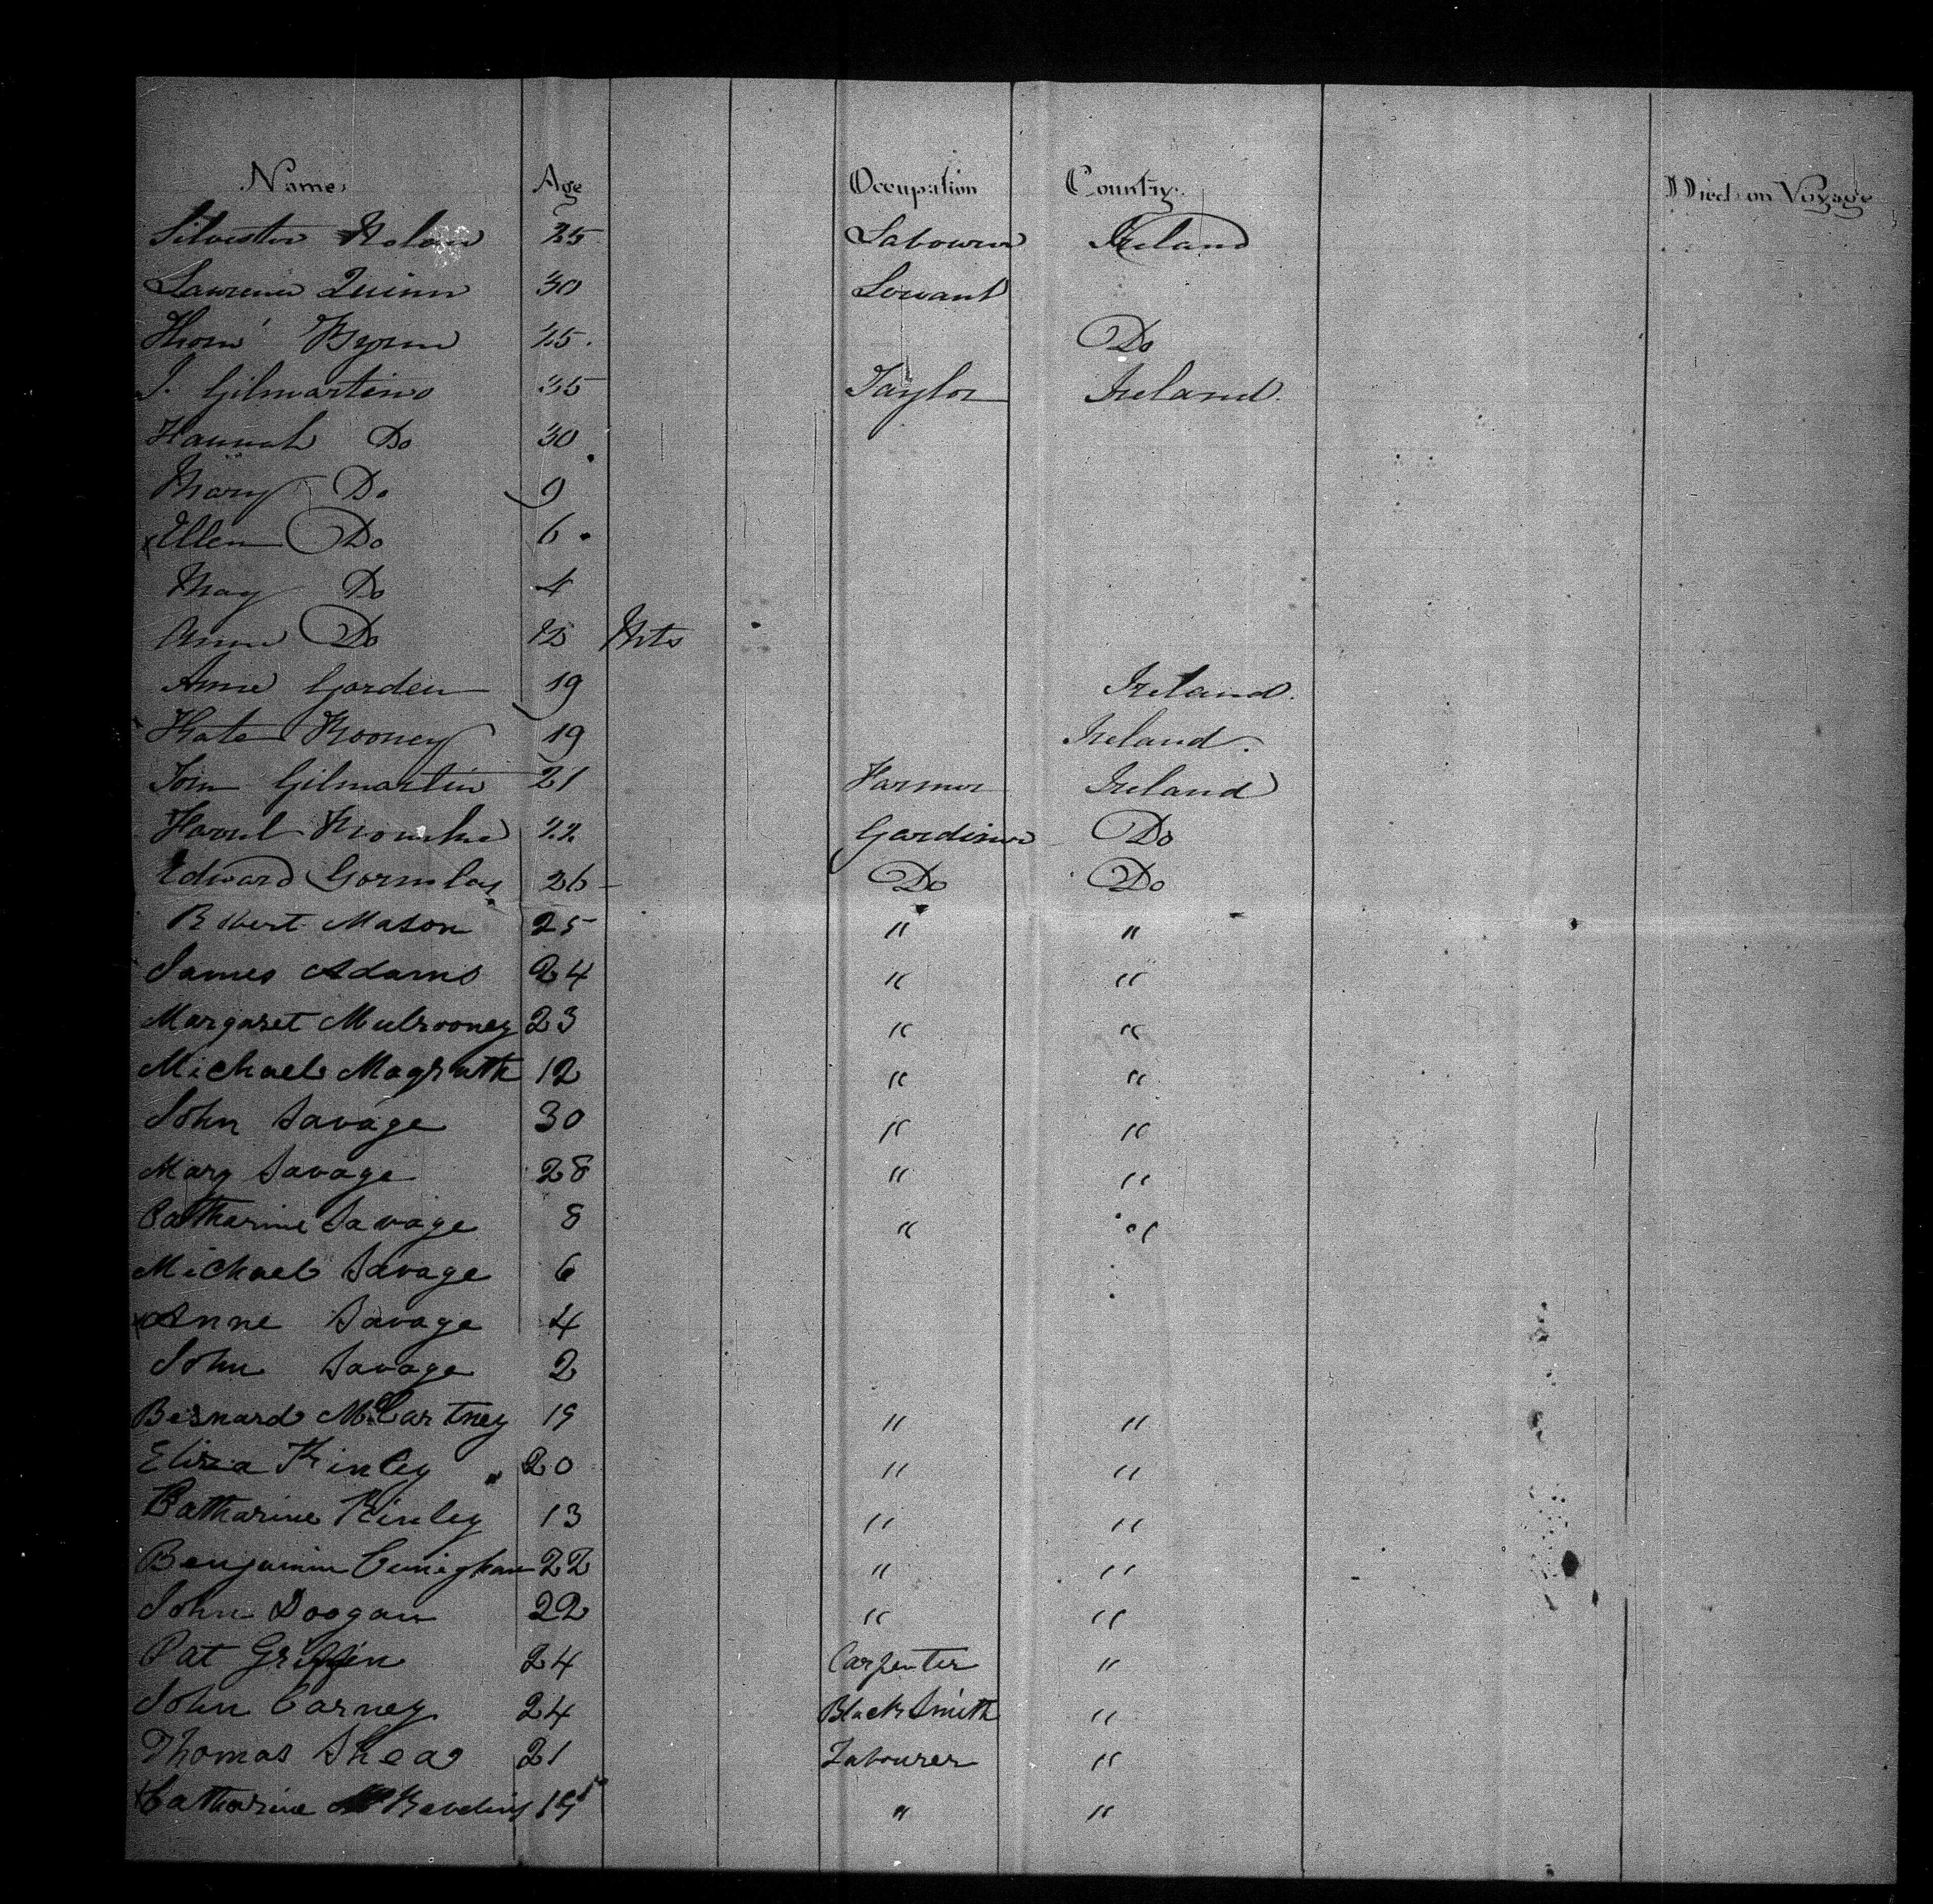 Name Age Occupation Country Died on Voyage
Silvester Nolan 25 Labourer Ireland
Lawrence Quinn 30 Servant
Thom' Byrne 25 Do
J. Gilmartins 35 Taylor Ireland
Hannah Do 30
Mary Do 9
Ellen Do 6
May Do 4
Anne Do Mts
Anne Gorden 19 Ireland
Kate Rooney 19 Ireland
Tom Gilmartin 21 Farmer Ireland
22 Gardiner Do
Edward Gormley 26 Do Do
Robert Mason 25 " "
James Adams 24 " "
Margaret Mulrooney 23 " "
Michael Magrath 12 " "
John Savage 30 " "
Mary Savage 28 " "
Catharine Savage 8 " "
Michael Savage 6
Anne Savage 4
John Savage 2
Bernard McCartney 19 " "
Eliza Kinley 20 " "
Catharine Kinley 13 " "
Benjamin Cunigham 22 " "
John Doogan 22 " "
Pat Griffin 24 Carpenter "
John Carney 24 Black Smith "
Thomas Shea 21 Labourer "
Catharine 19 " "